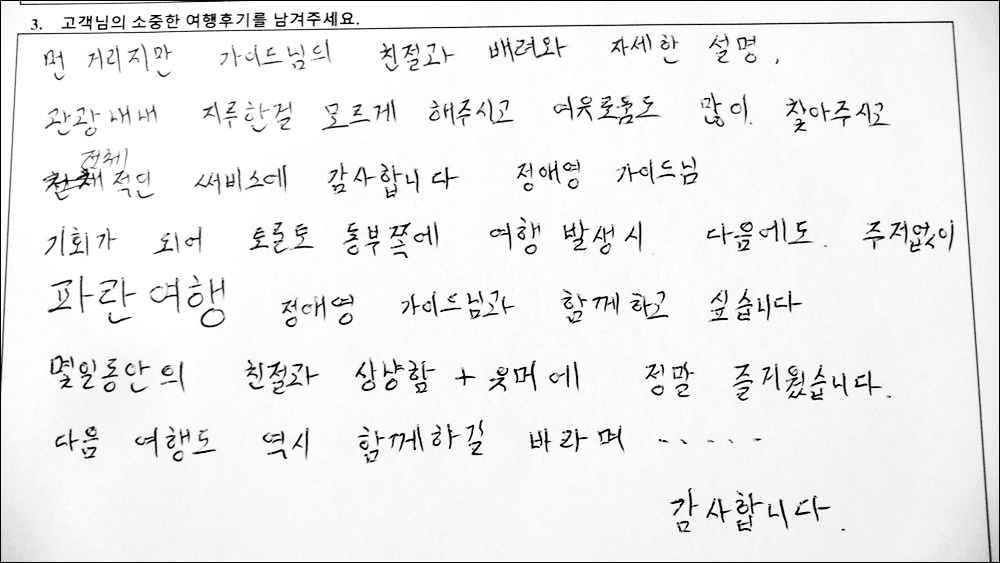 3. 고객님의 소중한 여행후기를 남겨주세요.
먼 거리지만 가이드님의 친절과 배려와 자세한 설명,
관광내내 지루한걸 모르게 해주시고 여유로움도 많이 찾아주시고
전체적인 써비스에 감사합니다 정애영 가이드님
기회가 되어 토론토 동부쪽에 여행 발생시 다음에도 주저없이
파란여행 정애영 가이드님과 함께하고 싶습니다
몇일동안의 친절과 상냥함 + 유머에 정말 즐거웠습니다.
다음 여행도 역시 함께하길 바라며 ......
감사합니다.